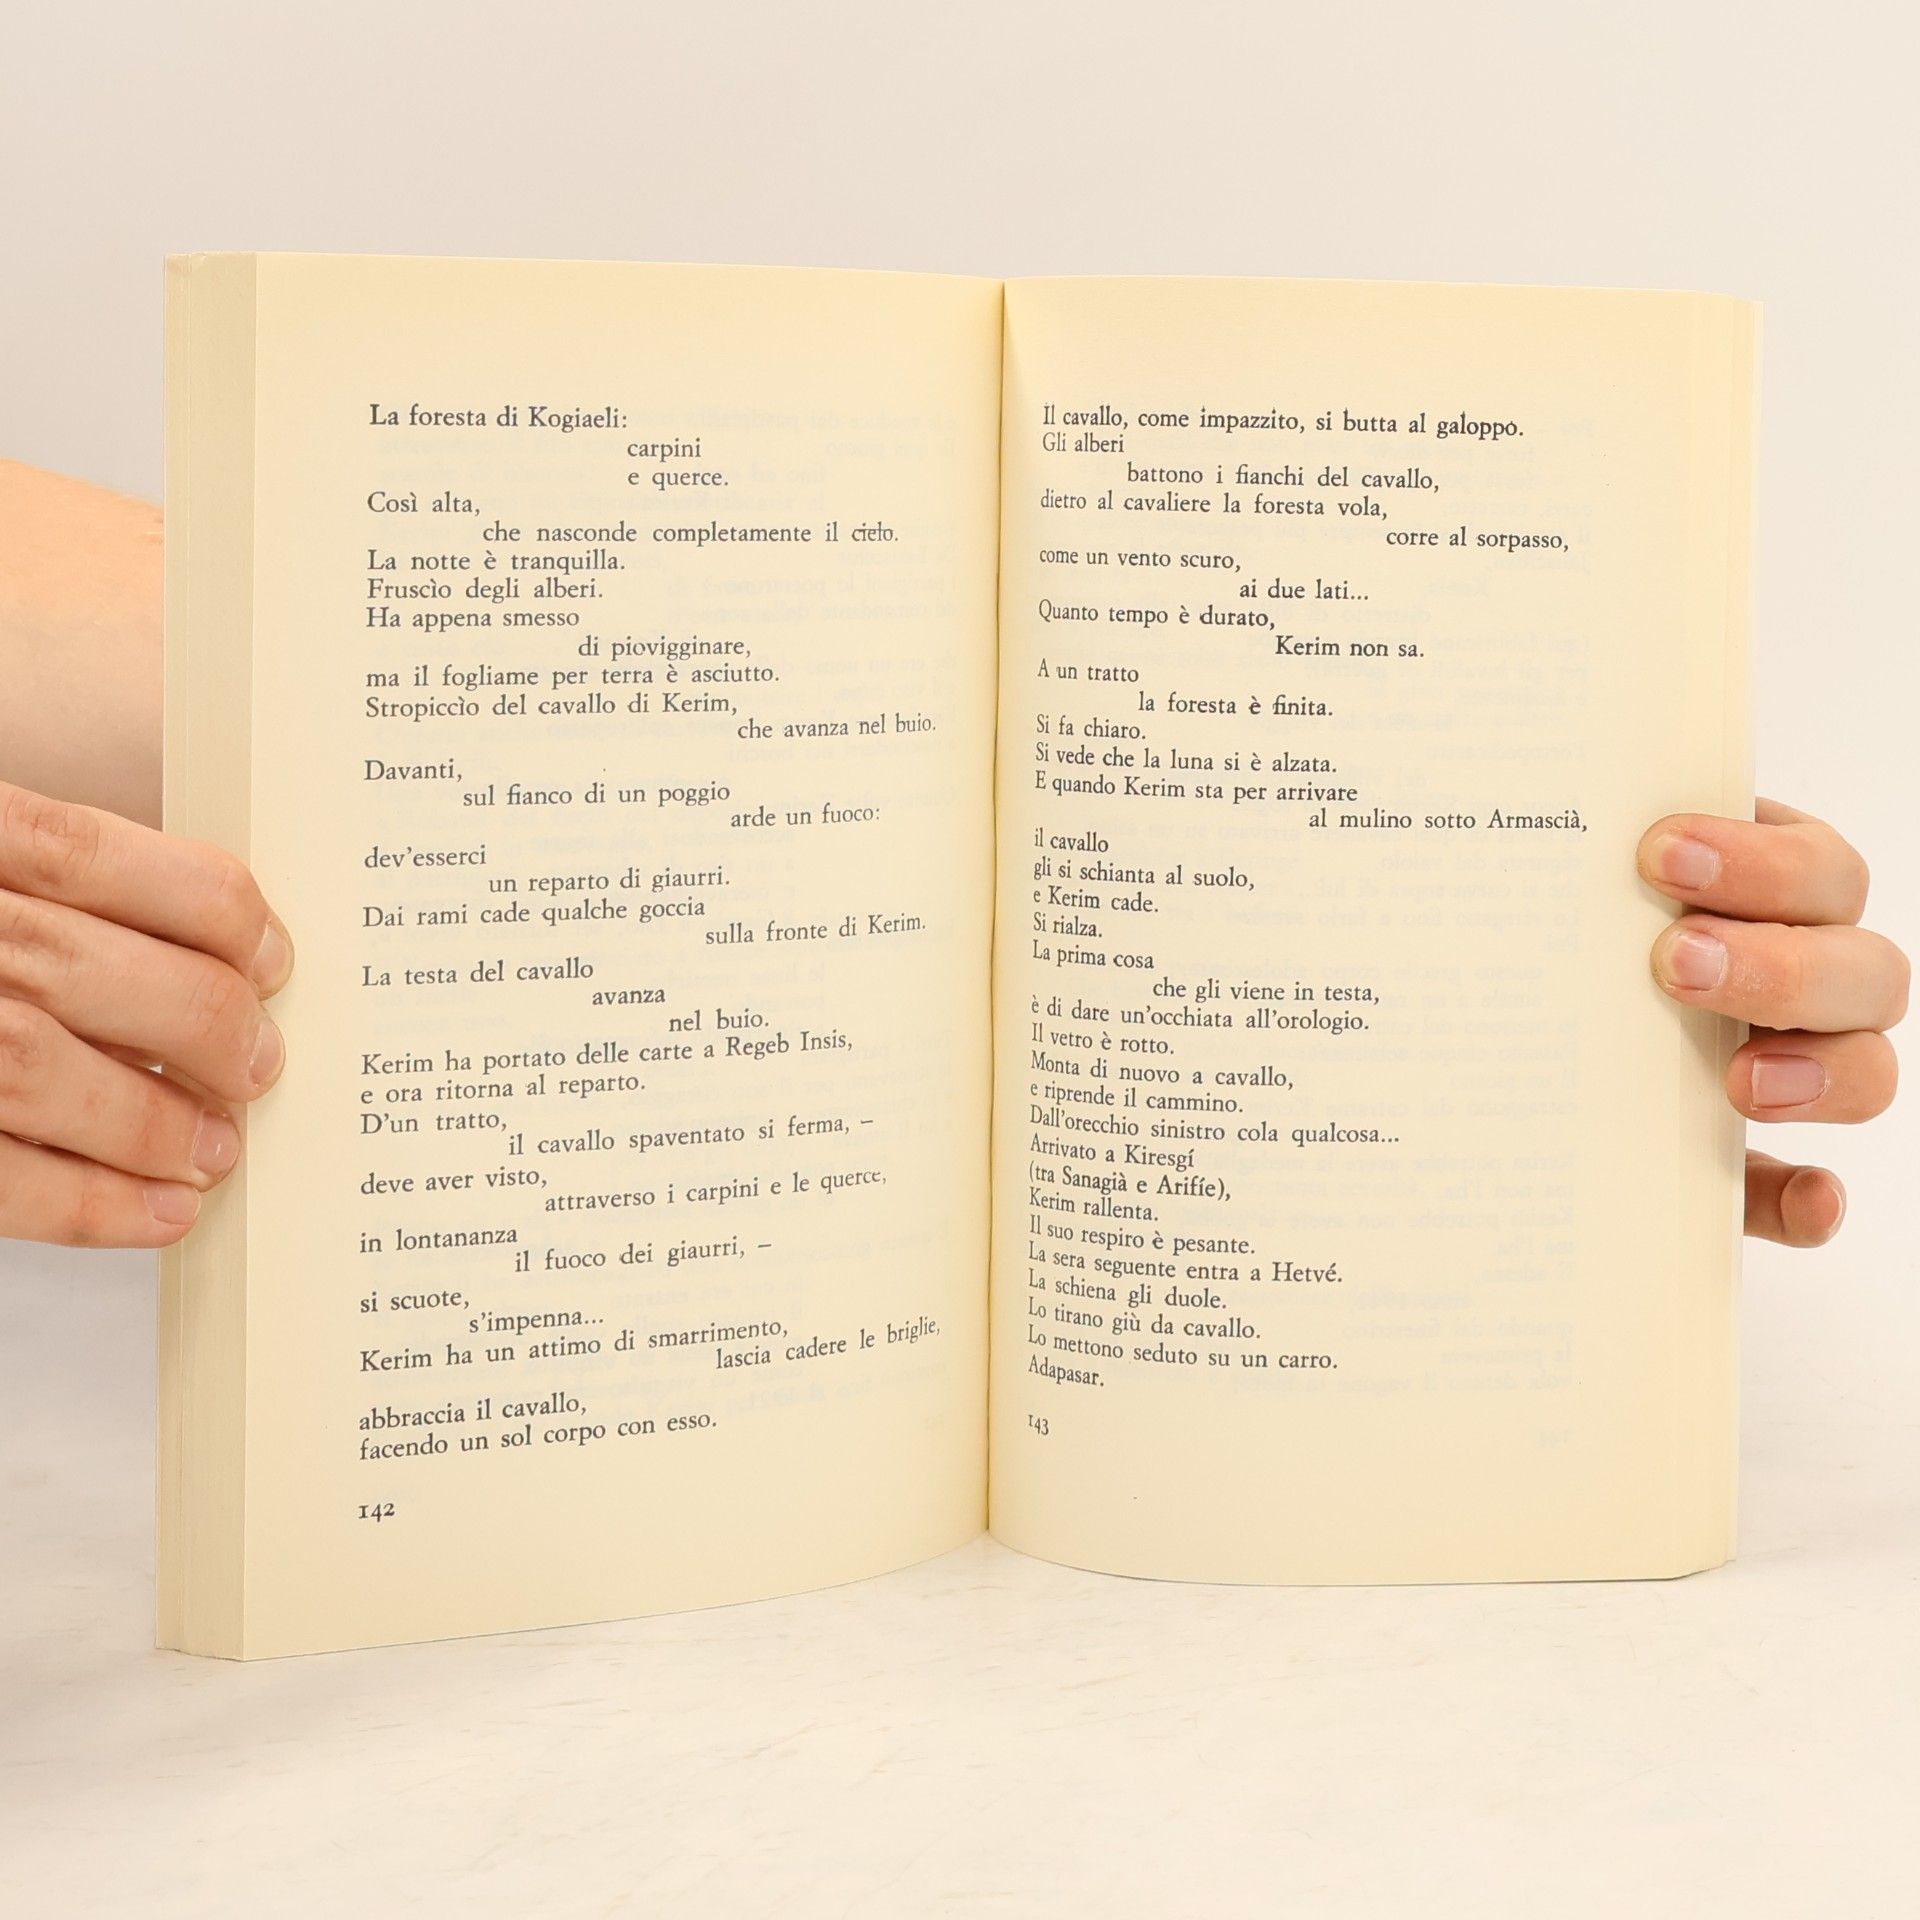 La foresta di Kogiaeli:
carpini
e querce.
Così alta,
che nasconde completamente il cielo.
La notte è tranquilla.
Fruscìo degli alberi.
Ha appena smesso
di piovigginare,
ma il fogliame per terra è asciutto.
Stropiccìo del cavallo di Kerim,
che avanza nel buio.
Davanti,
sul fianco di un poggio
arde un fuoco:
dev'esserci
un reparto di giaurri.
Dai rami cade qualche goccia
sulla fronte di Kerim.
La testa del cavallo
avanza
nel buio.
Kerim ha portato delle carte a Regeb Insis,
e ora ritorna al reparto.
D'un tratto,
il cavallo spaventato si ferma, –
deve aver visto,
attraverso i carpini e le querce,
in lontananza
il fuoco dei giaurri, –
si scuote,
s'impenna...
Kerim ha un attimo di smarrimento,
lascia cadere le briglie,
abbraccia il cavallo,
facendo un sol corpo con esso.
142
Il cavallo, come impazzito, si butta al galoppo.
Gli alberi
battono i fianchi del cavallo,
dietro al cavaliere la foresta vola,
corre al sorpasso,
come un vento scuro,
ai due lati...
Quanto tempo è durato,
Kerim non sa.
A un tratto
la foresta è finita.
Si fa chiaro.
Si vede che la luna si è alzata.
E quando Kerim sta per arrivare
al mulino sotto Armascià,
il cavallo
gli si schianta al suolo,
e Kerim cade.
Si rialza.
La prima cosa
che gli viene in testa,
è di dare un'occhiata all'orologio.
Il vetro è rotto.
Monta di nuovo a cavallo,
e riprende il cammino.
Dall'orecchio sinistro cola qualcosa...
Arrivato a Kiresgí
(tra Sanagià e Arifíe),
Kerim rallenta.
Il suo respiro è pesante.
La sera seguente entra a Hetvé.
La schiena gli duole.
Lo tirano giù da cavallo.
Lo mettono seduto su un carro.
Adapasar.
143